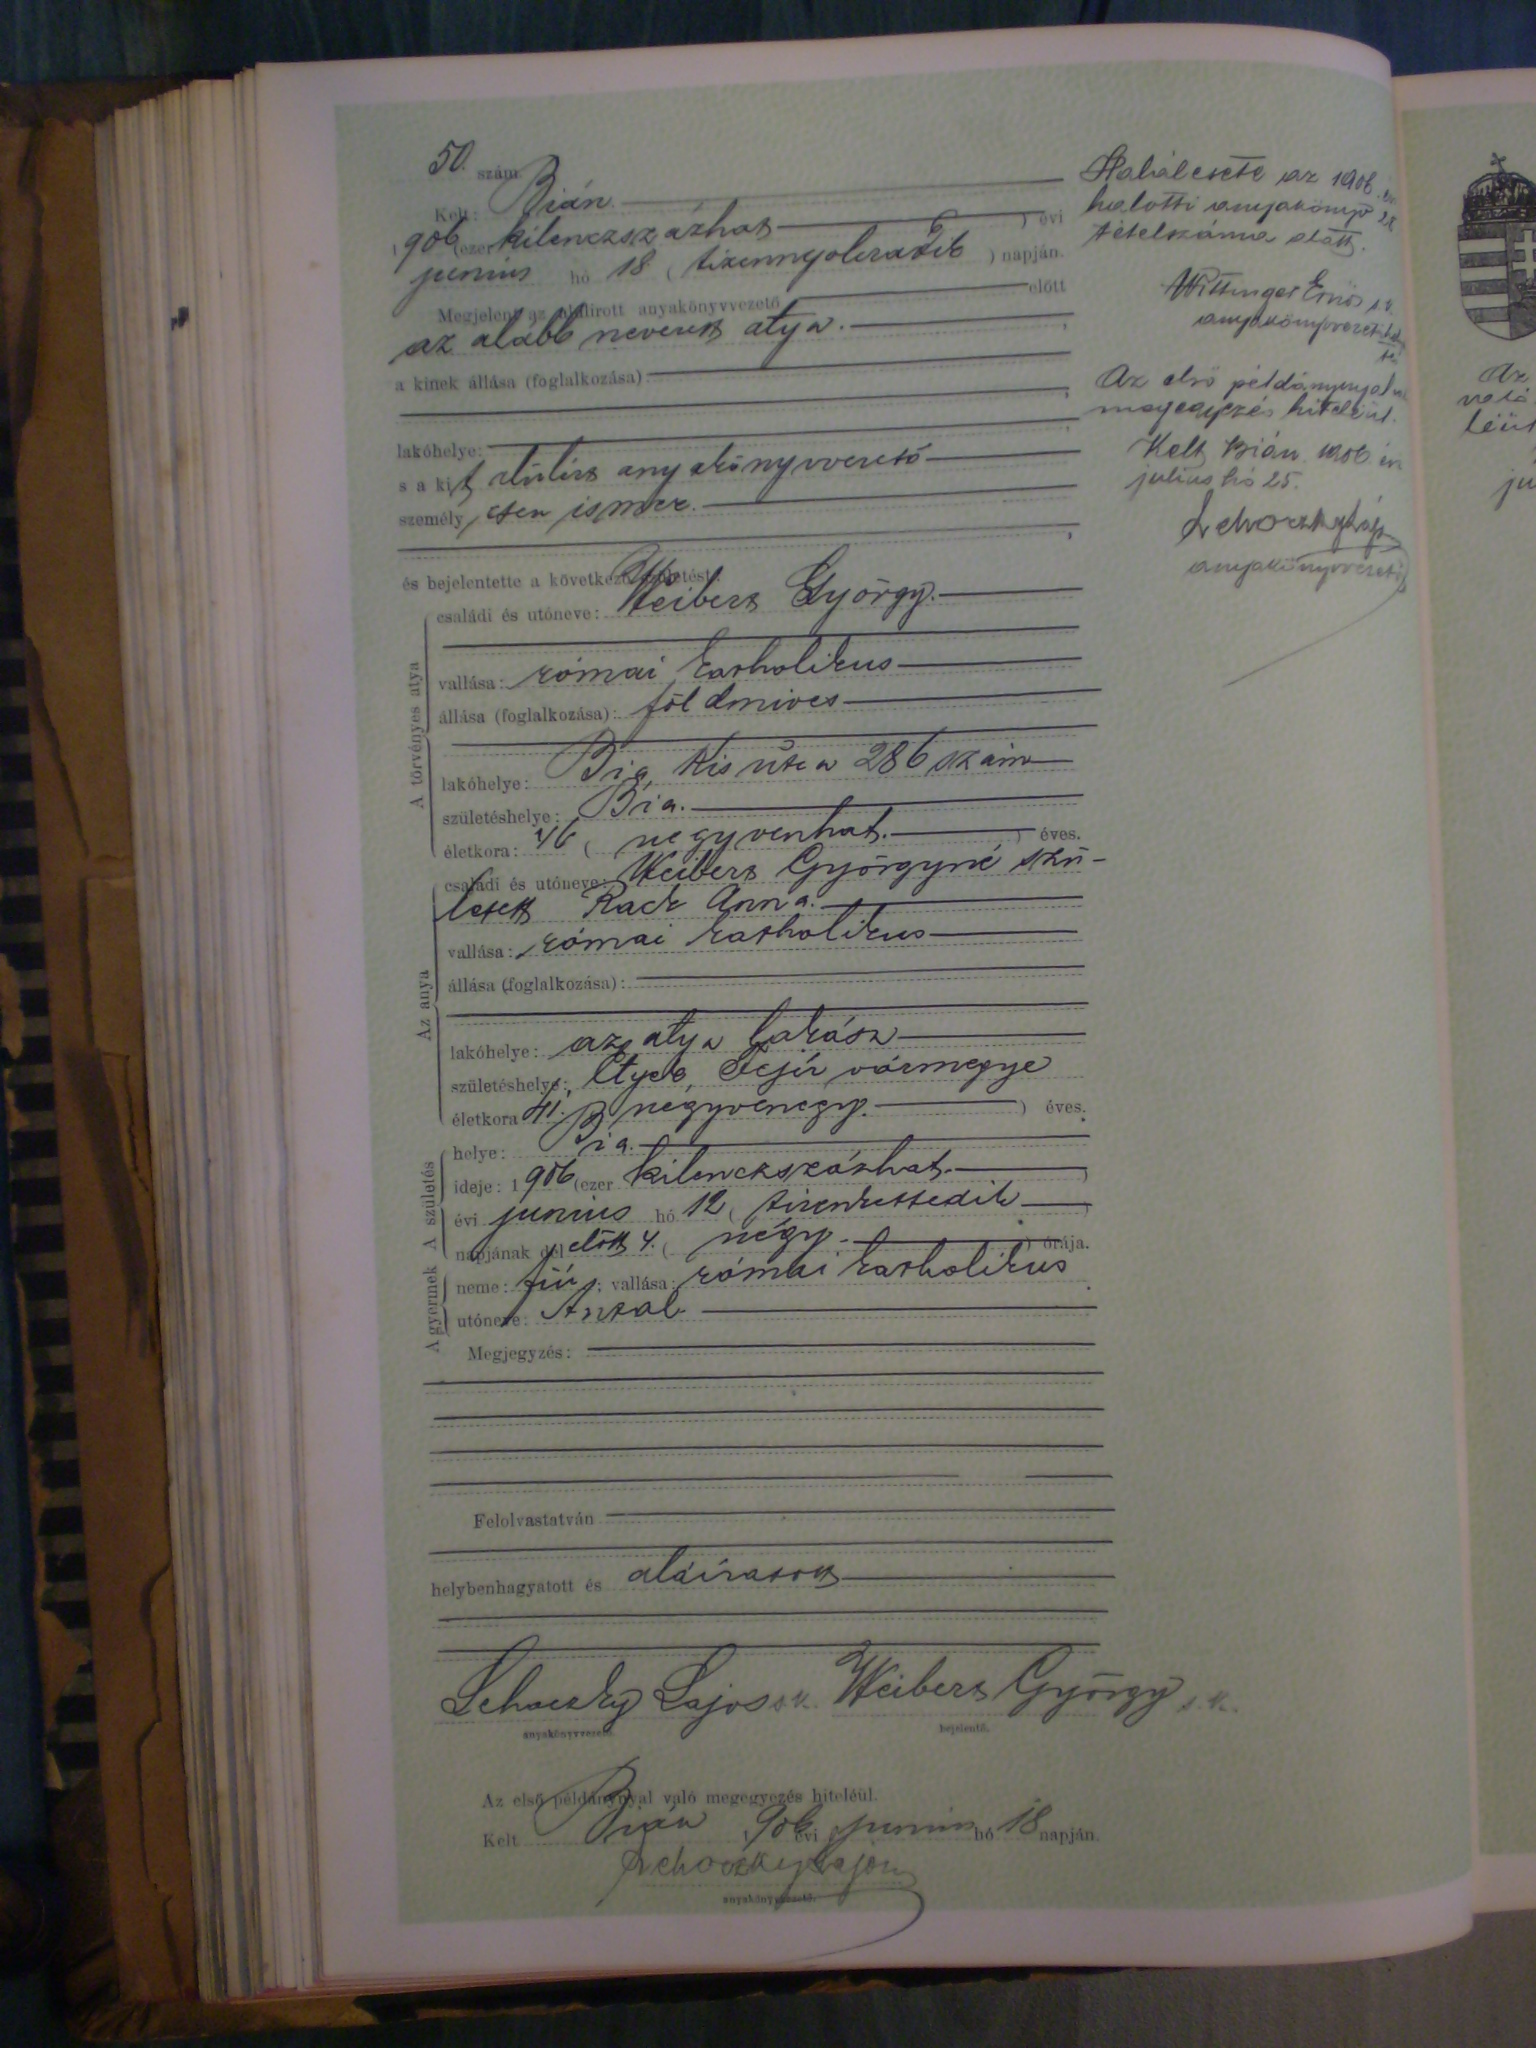 50. szám.
Kelt: Bián
1906 (ezer kilenczszázhat ) évi
junius hó 18 ( tizennyolczadik ) napján.
Megjelent az alulirott anyakönyvvezető előtt
az alább nevezett atya.
a kinek állása (foglalkozása)
lakóhelye:
s a kit alulirt anyakönyvvezető
személyesen ismer.
és bejelentette a következő születést:
A törvényes atya
családi és utóneve: Weibert György.
vallása: római katholikus
állása (foglalkozása): földmives
lakóhelye: Bia, Kis utca 286 szám
születéshelye: Bia.
életkora: 46 ( negyvenhat. ) éves.
Az anya
családi és utóneve: Weibert Györgyné szü-
letett Rack Anna.
vallása: római katholikus
állása (foglalkozása):
lakóhelye: az atya lakása
születéshelye: Etyek, Fejér vármegye
életkora 41. negyvenegy. ) éves.
A születés
helye: Bia.
ideje: 1906 (ezer kilenczszázhat. )
évi junius hó 12 ( tizenkettedik )
napjának dél előtt 4. ( négy. ) órája.
A gyermek
neme: fiú; vallása: római katholikus
utóneve: Antal
Megjegyzés:
Felolvastatván
helybenhagyatott és aláiratott
Lehoczky Lajos s.k. Weibert György s.k.
anyakönyvvezető. bejelentő.
Az első példánynyal való megegyezés hiteléül.
Kelt Bián 1906 évi junius hó 18 napján.
Lehoczky Lajos
anyakönyvvezető.
Halálesete az 1906. évi
halotti anyakönyv 28
tételszáma alatt.
Wittinger Ernő s.k.
anyakönyvvezető
Az első példánynyal való
megegyezés hiteléül.
Kelt Bián 1906 évi
julius hó 25.
Lehoczky Lajos
anyakönyvvezető